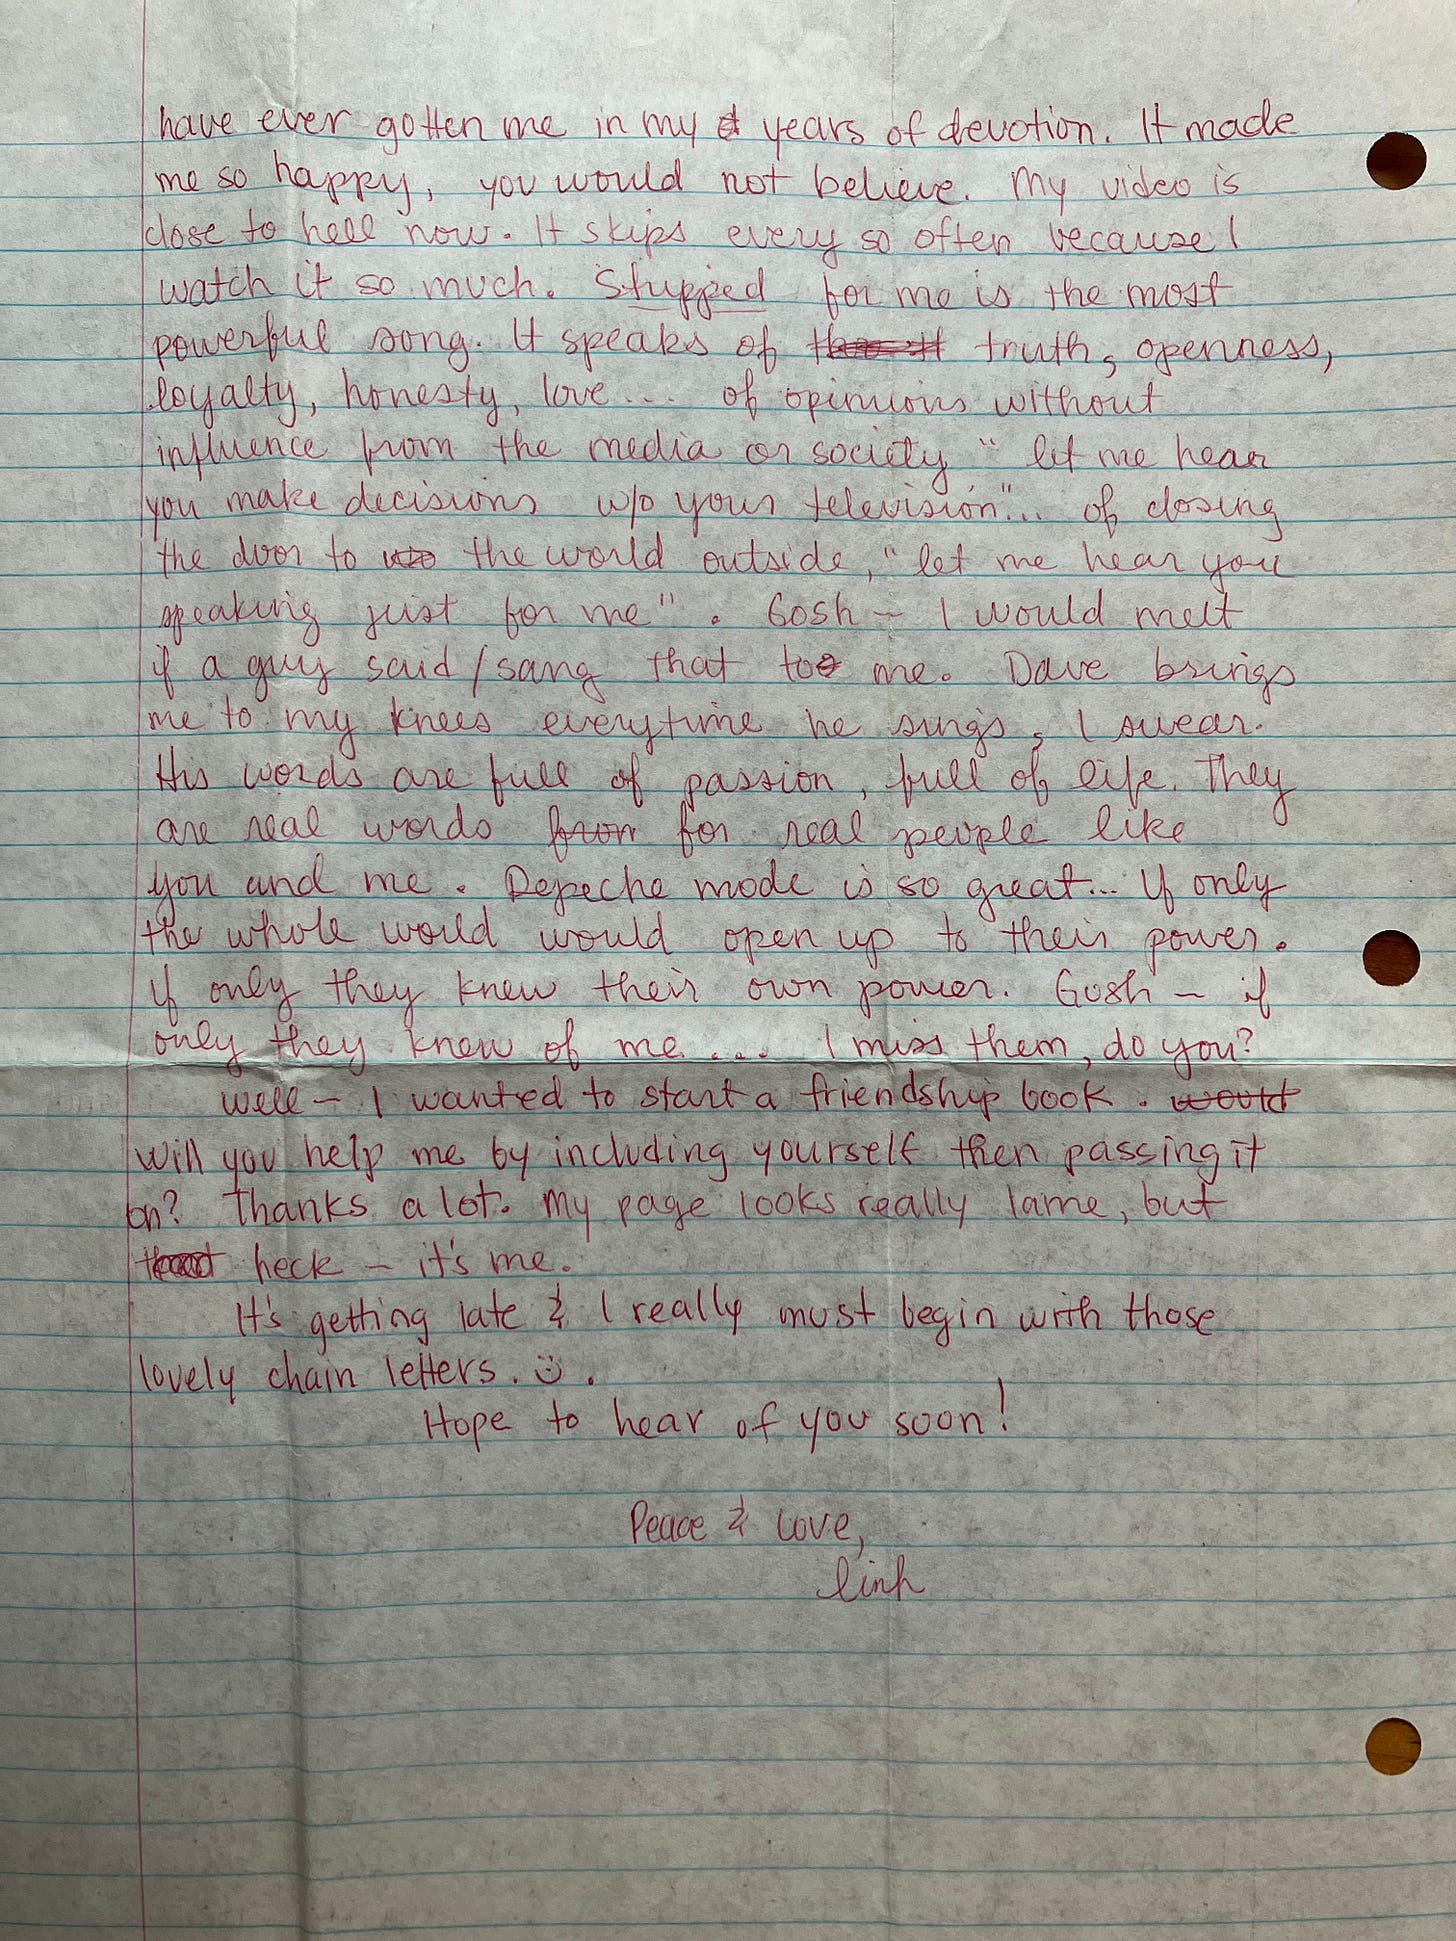 have ever gotten me in my years of devotion. It made
me so happy, you would not believe. My video is
close to hell now. It skips every so often because I
watch it so much. Stupped for me is the most
powerful song. It speaks of truth, openness,
loyalty, honesty, love... of opinions without
influence from the media or society "let me hear
you make decisions w/o your television"... of closing
the door to the world outside, "let me hear you
speaking just for me". Gosh - I would melt
if a guy said/sang that to me. Dave brings
me to my knees everytime he sings, I swear.
His words are full of passion, full of life. They
are real words from for real people like
you and me. Depeche mode is so great... If only
the whole world would open up to their power.
If only they knew their own power. Gosh - if
only they knew of me... I miss them, do you?
Well - I wanted to start a friendship book. would
will you help me by including yourself then passing it
on? Thanks a lot. My page looks really lame, but
heck - it's me.
It's getting late & I really must begin with those
lovely chain letters. ☺.
Hope to hear of you soon!
Peace & Love,
Linh